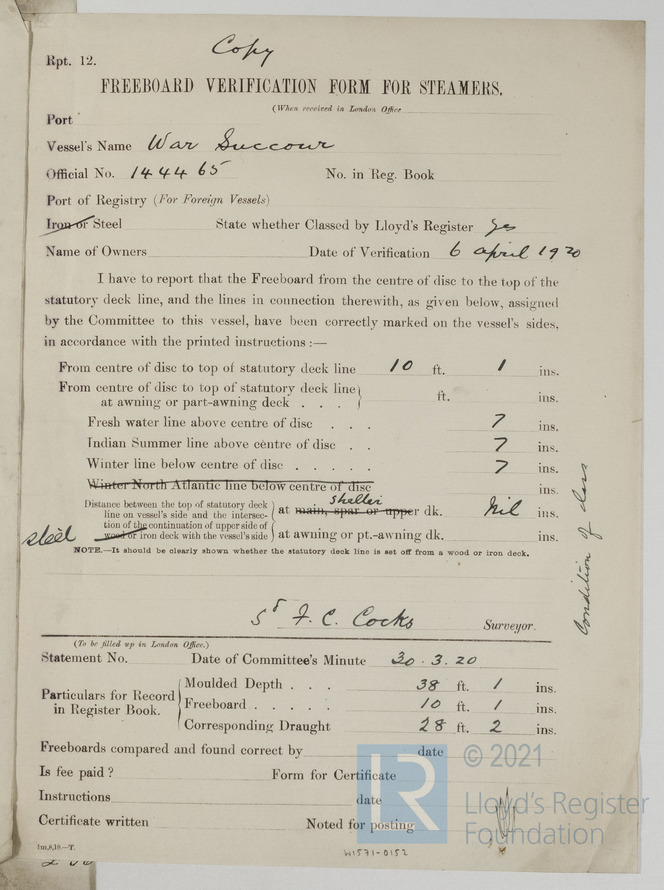 Copy
Rpt. 12.
FREEBOARD VERIFICATION FORM FOR STEAMERS.
(When received in London Office
Port
Vessel's Name War Succour
Official No. 144465 No. in Reg. Book
Port of Registry (For Foreign Vessels)
Iron or Steel State whether Classed by Lloyd's Register yes
Name of Owners Date of Verification 6 april 1920
I have to report that the Freeboard from the centre of disc to the top of the
statutory deck line, and the lines in connection therewith, as given below, assigned
by the Committee to this vessel, have been correctly marked on the vessel's sides,
in accordance with the printed instructions :—
From centre of disc to top of statutory deck line 10 ft. 1 ins.
From centre of disc to top of statutory deck line
at awning or part-awning deck . . . ft. ins.
Fresh water line above centre of disc . . . 7 ins.
Indian Summer line above centre of disc . . 7 ins.
Winter line below centre of disc . . . . . 7 ins.
Winter North Atlantic line below centre of disc ins.
Distance between the top of statutory deck
line on vessel's side and the intersec-
tion of the continuation of upper side of
wood or iron deck with the vessel's side
steel
shelter
at main, spar or upper dk. Nil ins.
at awning or pt.-awning dk. ins.
NOTE.—It should be clearly shown whether the statutory deck line is set off from a wood or iron deck.
Condition of class
Sd F. C. Cocks Surveyor.
(To be filled up in London Office.)
Statement No. Date of Committee's Minute 30.3.20
Particulars for Record
in Register Book.
Moulded Depth . . . 38 ft. 1 ins.
Freeboard . . . . . 10 ft. 1 ins.
Corresponding Draught 28 ft. 2 ins.
Freeboards compared and found correct by date
Is fee paid ? Form for Certificate
Instructions date
Certificate written Noted for posting
1m,6,19.—T.
W1571-0152
LR
© 2021
Lloyd's Register
Foundation